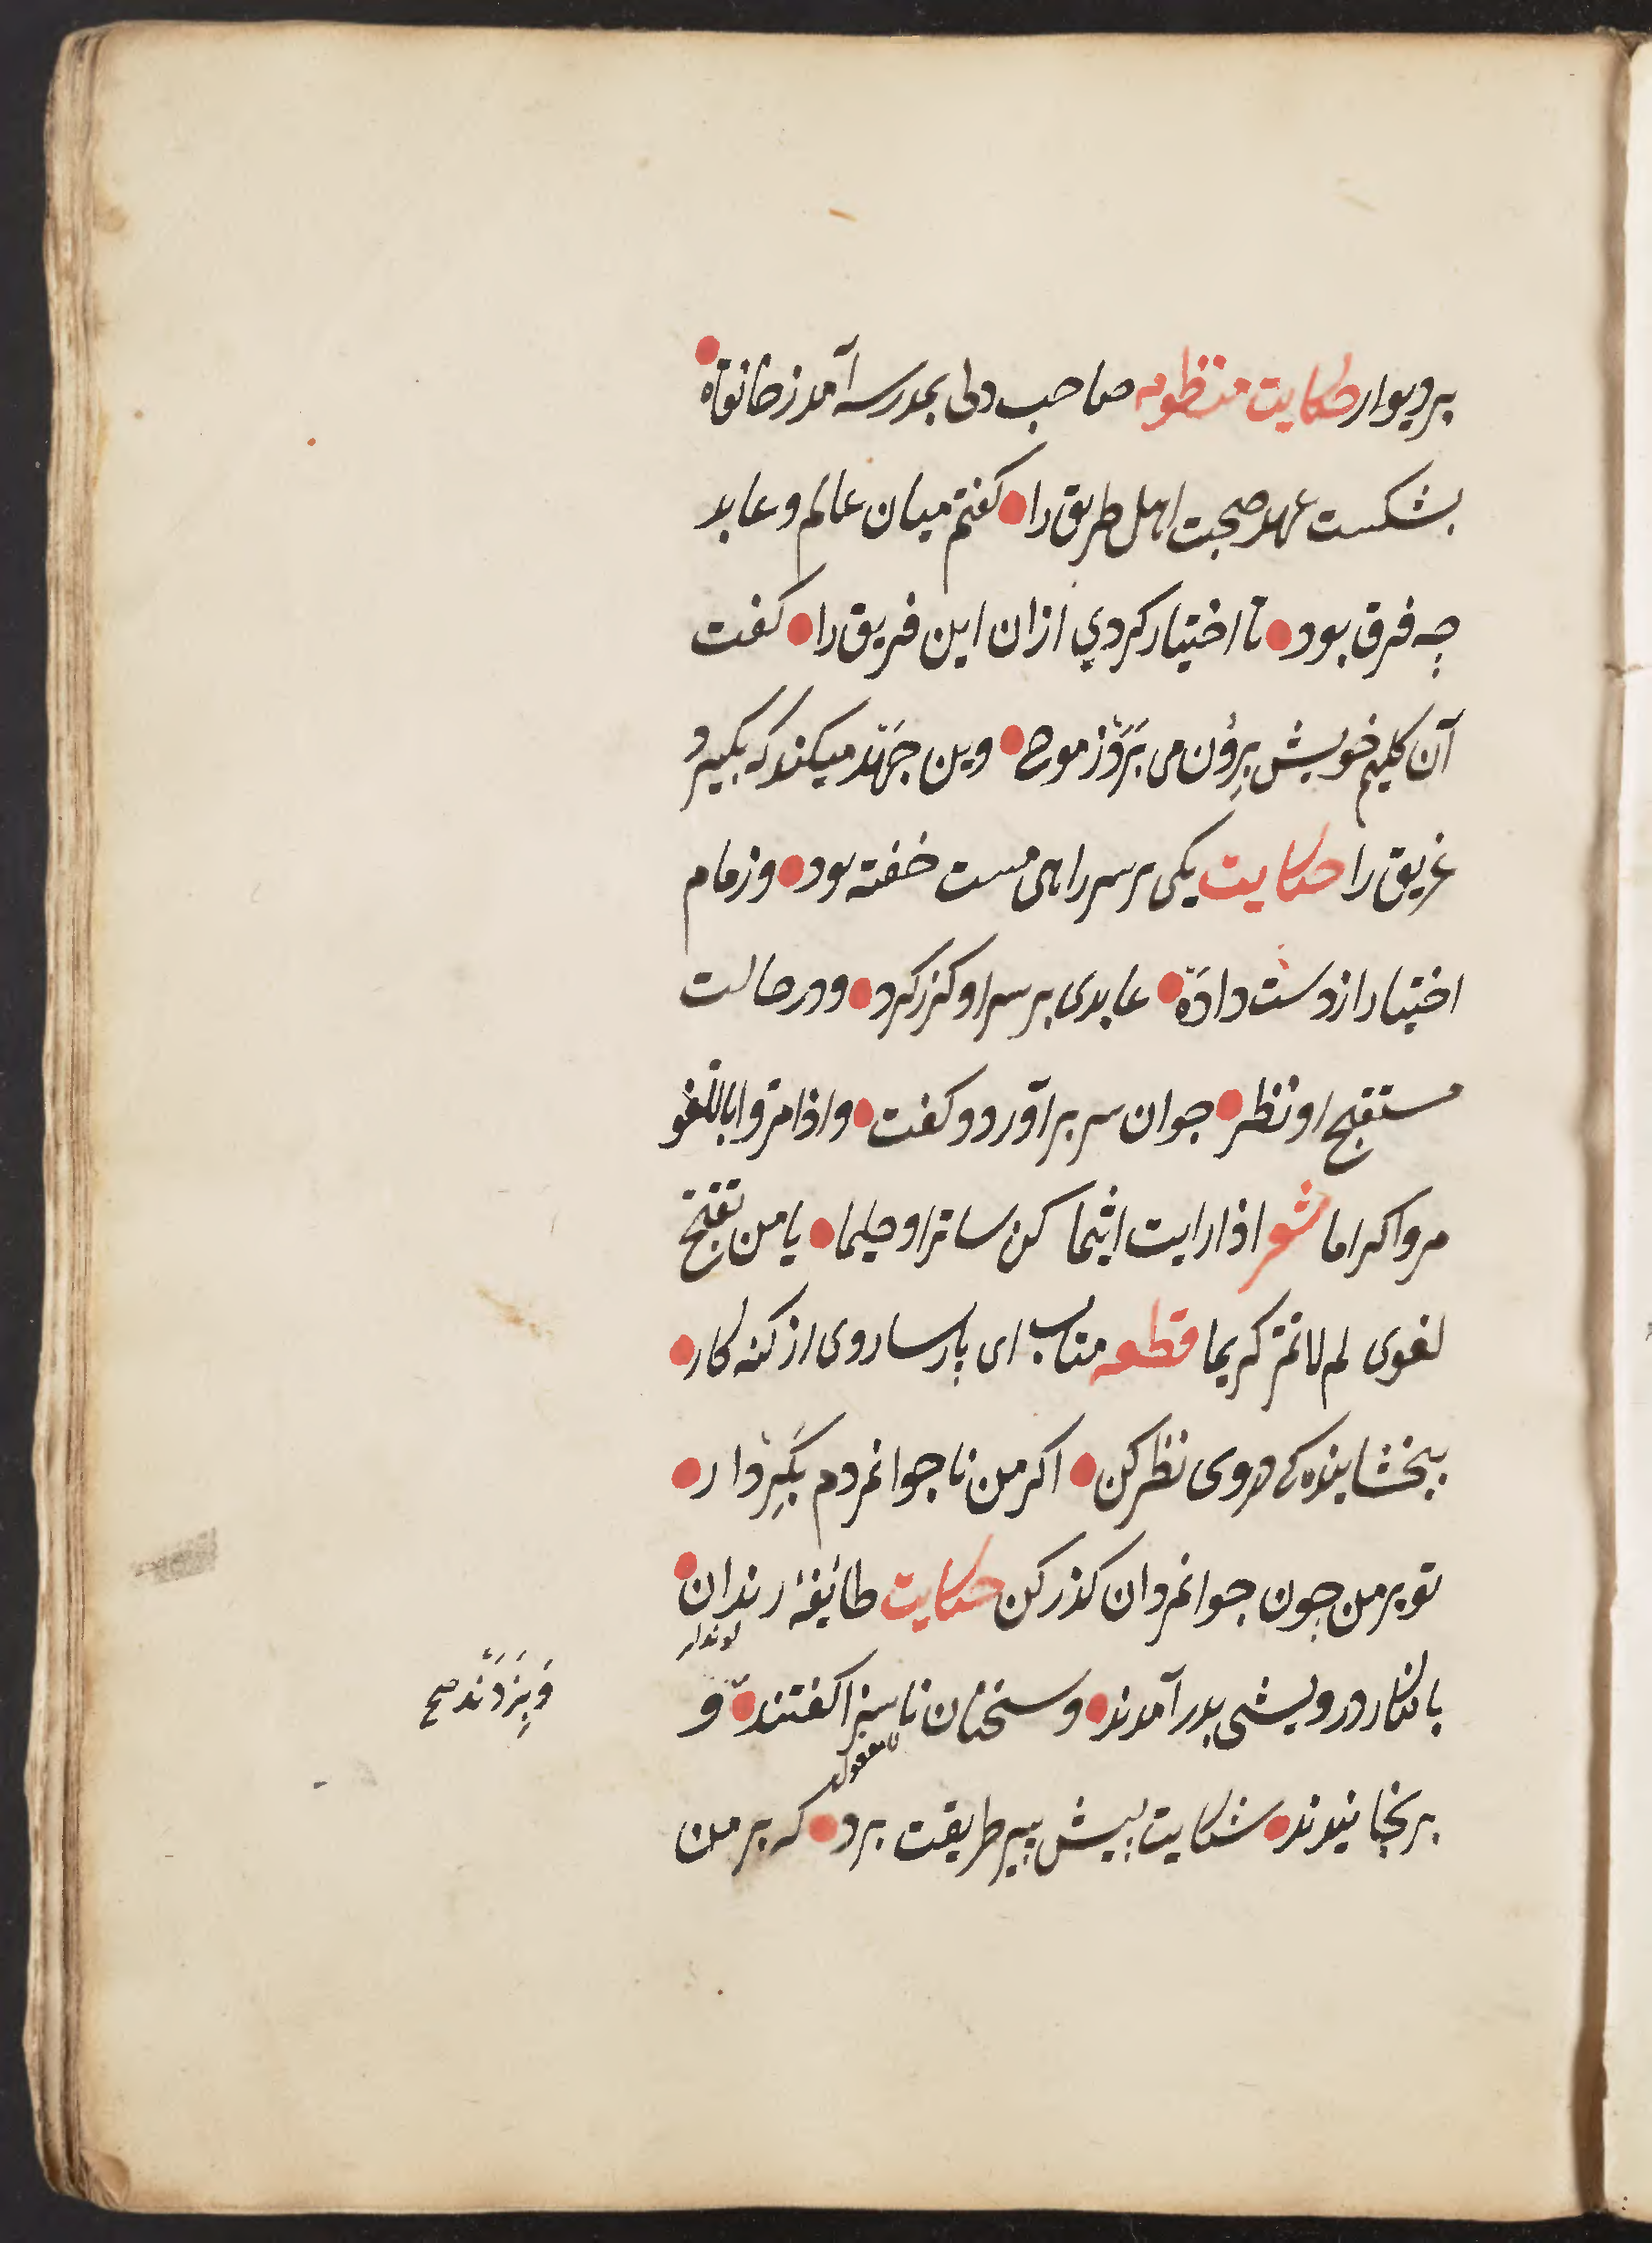 بر دیوار حکایت منظومه صاحب دلی بمدرسه آمد ز خانقاه
بشکست عهد صحبت اهل طریق را کفتم میان عالم و عابد
چه فرق بود تا اختیار کردی ازان این فریق را کفت
آن کلیم خویش برون می برد ز موج وین جهد میکند که بکیرد
غریق را حکایت یکی بر سر راهی مست خفته بود و زمام
اختیار از دست داده عابدی بر سر او کذر کرد و در حالت
مستقبح او نظر جوان سر بر آورد و کفت و اذا مروا باللغو
مروا کراما شعر اذا رایت اثیما کن ساترا و حلیما یا من تقبح
لغوی لم لا تمر کریما قطعه متاب ای پارسا روی از کنه کار
ببخشایندکی در وی نظر کن اکر من ناجوانمردم بکردار
تو بر من چون جوانمردان کذر کن حکایت طائفهٔ رندان
لوندلر
بانکار درویشی بدر آمدند و سخنان ناسزا کفتند و
وبزدند صح
نامعقول
برنجانیدند شکایت پیش پیر طریقت برد که بر من